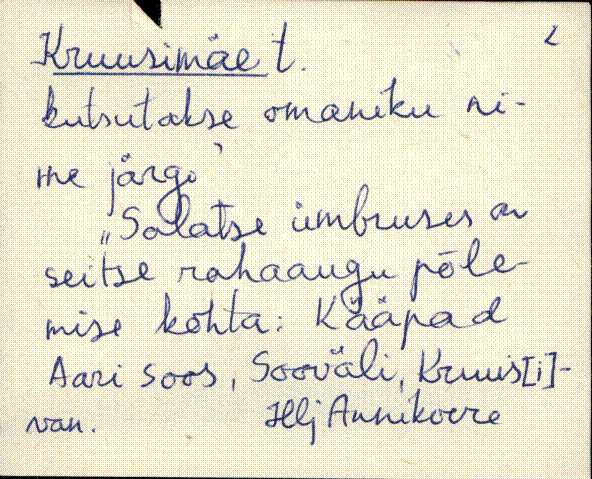 2
Kruusimäe t.
kutsutakse omaniku ni-
me järgi
"Salatse ümbruses on
seitse rahaaugu põle-
mise kohta: Kääpad
Aari soos, Sooväli, Kruus[i]-
van. Hlj Annikoere